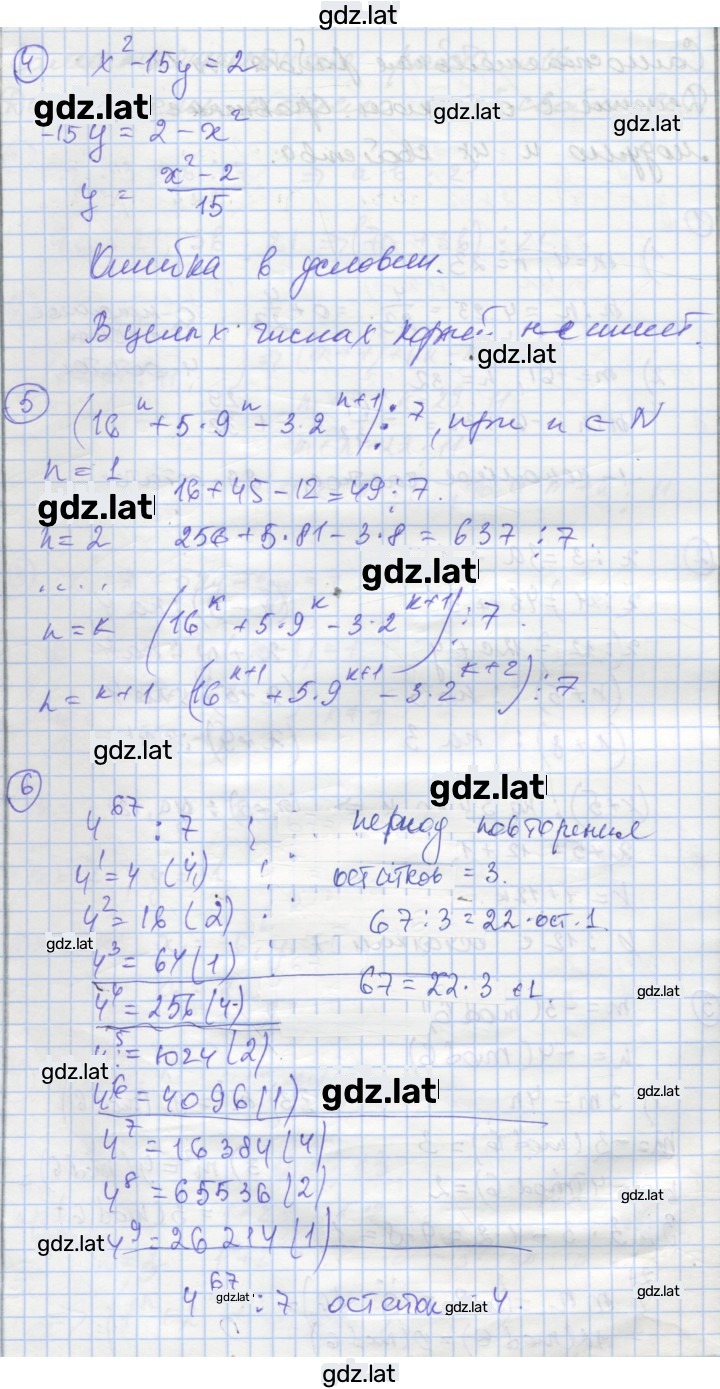 gdz.lat
4 x² - 15y = 2
gdz.lat gdz.lat gdz.lat
-15y = 2 - x²
y = (x² - 2)/15
Ошибка в условии.
В целых числах корней не имеет.
gdz.lat
5 (16ⁿ + 5·9ⁿ - 3·2ⁿ⁺¹)⋮7, при n ∈ N
n = 1 16 + 45 - 12 = 49⋮7.
gdz.lat
n = 2 256 + 5·81 - 3·8 = 637⋮7.
gdz.lat
.....
n = k (16ᵏ + 5·9ᵏ - 3·2ᵏ⁺¹)⋮7.
n = k+1 (16ᵏ⁺¹ + 5·9ᵏ⁺¹ - 3·2ᵏ⁺²)⋮7.
gdz.lat
6 gdz.lat
4⁶⁷ : 7 период повторения
4¹ = 4 (4) остатков = 3.
4² = 16 (2) 67 : 3 = 22 · ост. 1.
gdz.lat
4³ = 64 (1)
67 = 22·3 + 1. gdz.lat
4⁴ = 256 (4)
4⁵ = 1024 (2)
gdz.lat
4⁶ = 4096 (1) gdz.lat gdz.lat
4⁷ = 16384 (4)
4⁸ = 65536 (2) gdz.lat
gdz.lat 4⁹ = 26214 (1)
4⁶⁷ : 7 остаток 4.
gdz.lat gdz.lat gdz.lat
gdz.lat